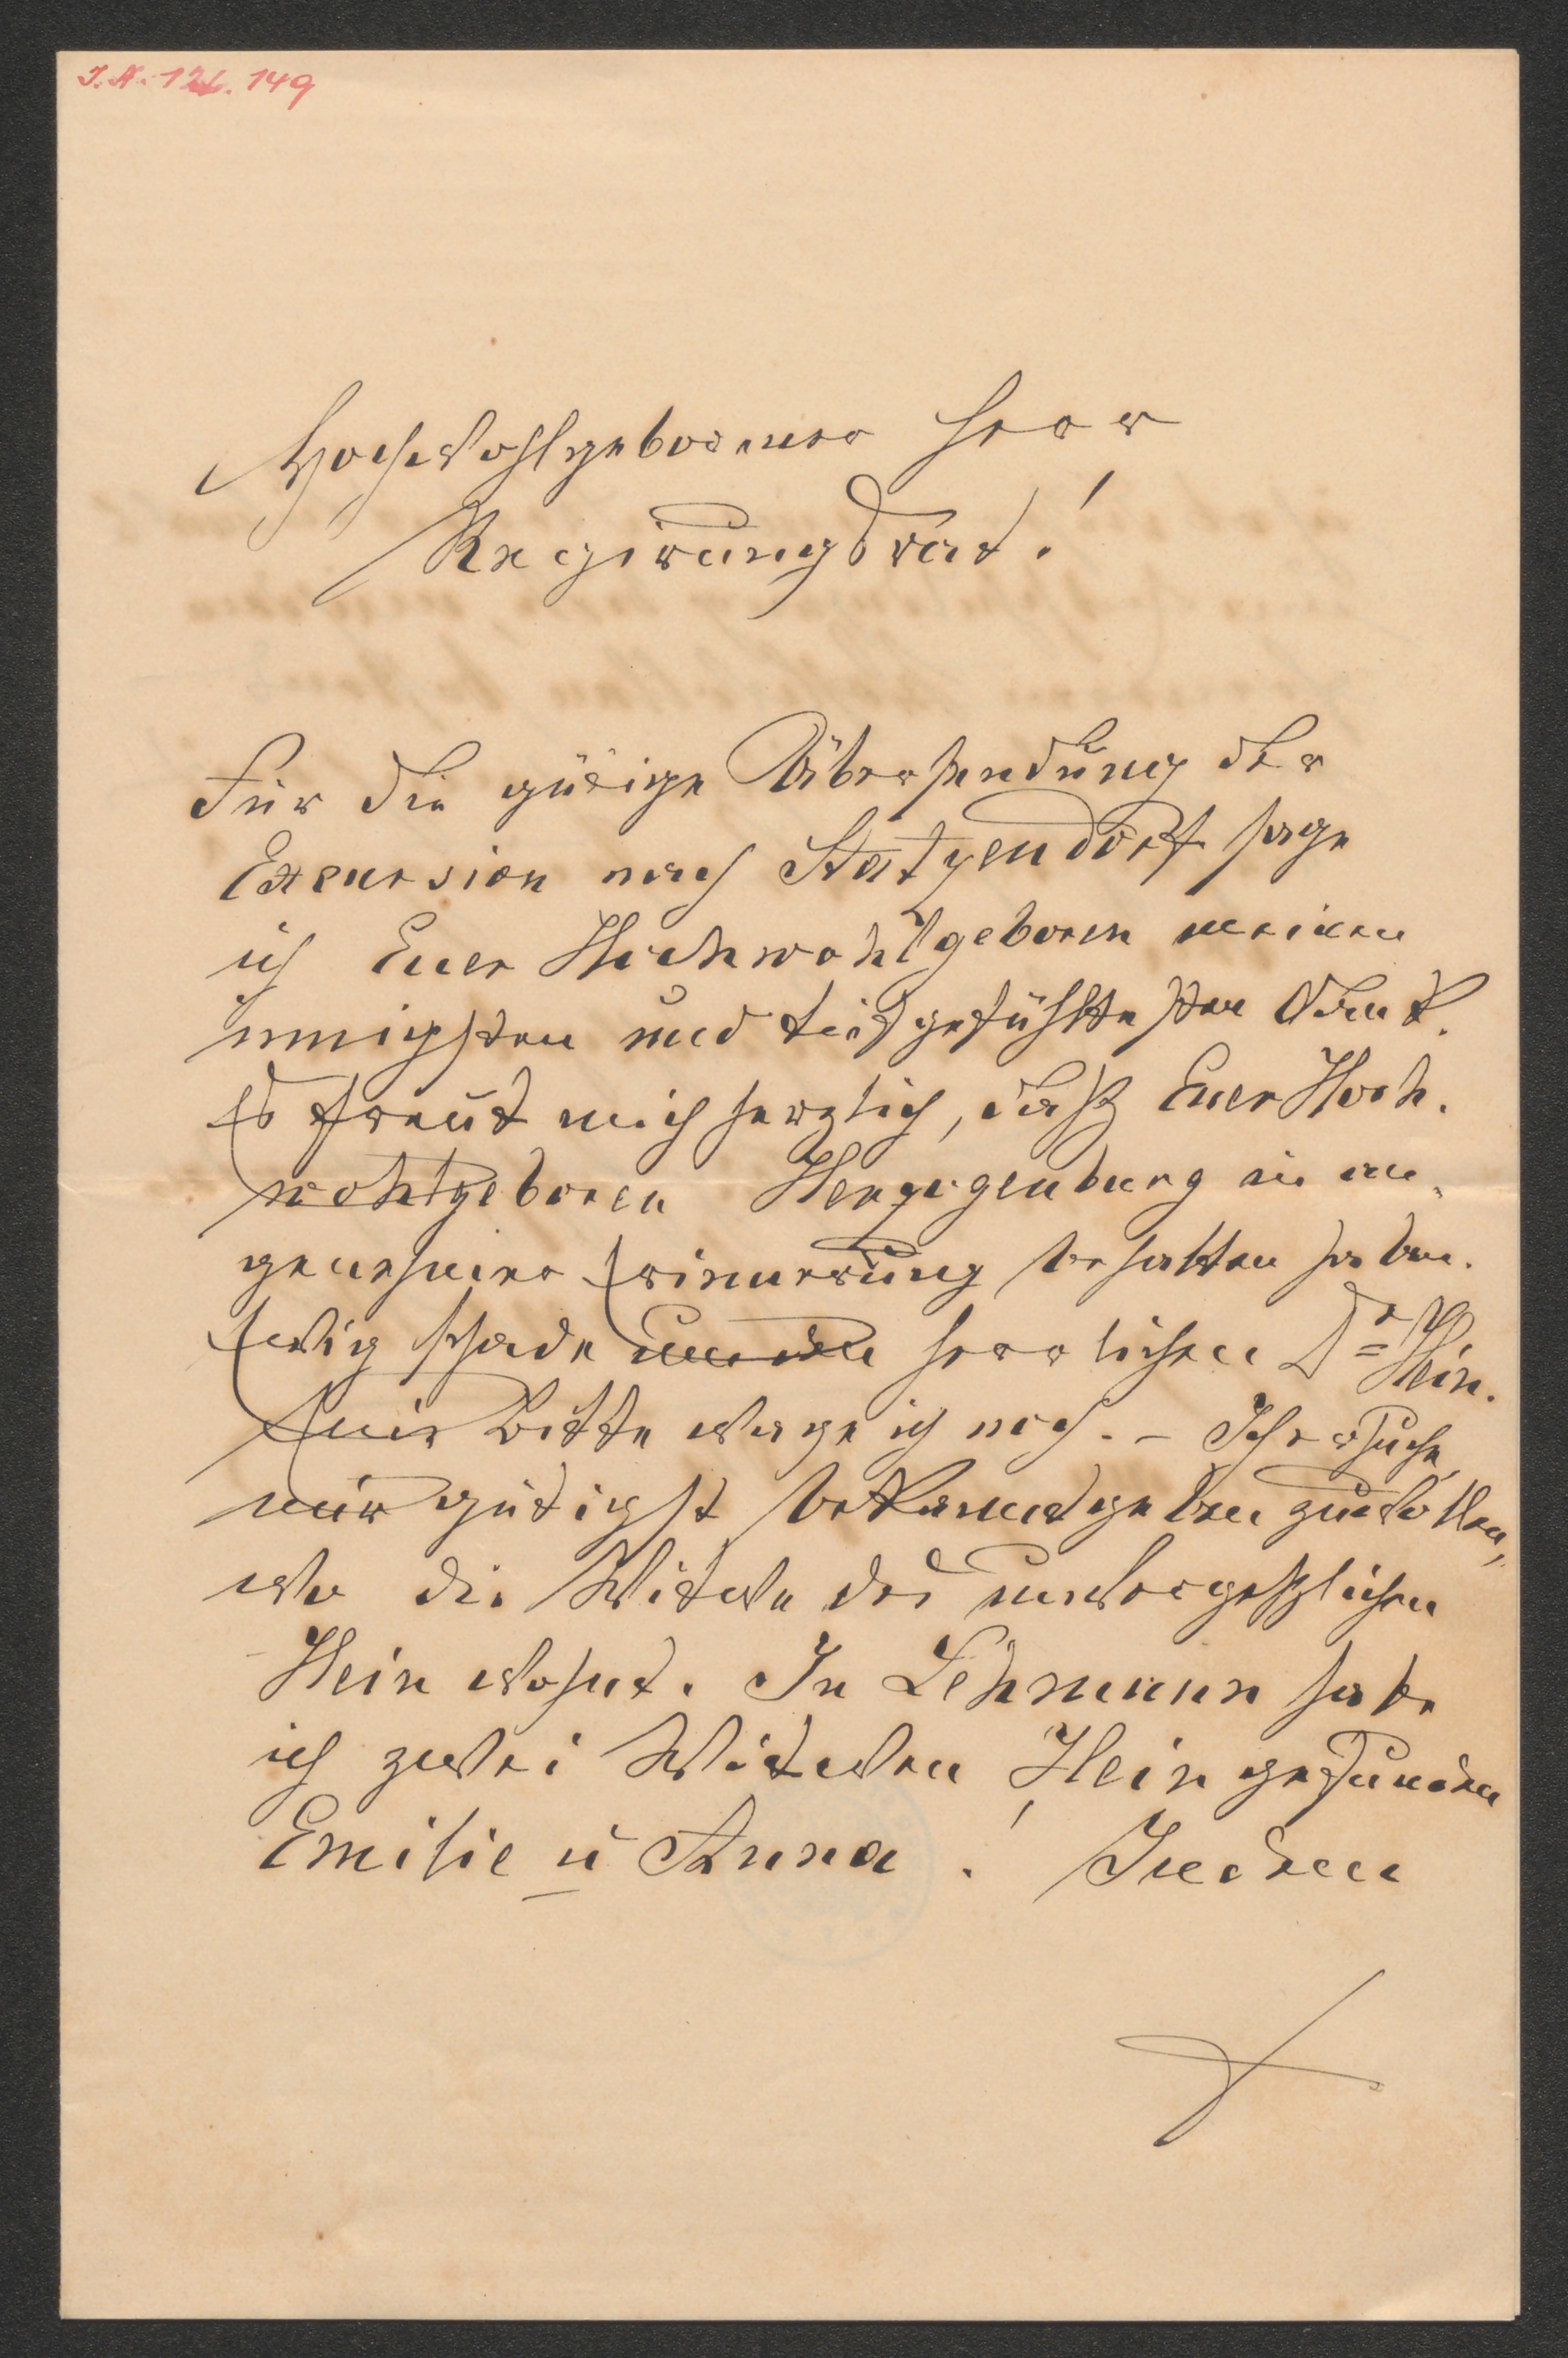 I.N. 121.149
Hochwohlgeborener Herr
Regirungsrat!
Für die gütige Übersendung der
Excursion nach Statzendorf sage
ich Euer Hochwohlgeboren meinen
innigsten und tiefgefühltesten Dank.
Es freut mich herzlich, daß Euer Hoch-
wohlgeboren Herzogenburg in an-
genehmer Erinnerung behalten haben.
Ewig schade um den herrlichen Dr Hein.
Eine Bitte wage ich noch. – Ich ersuche
mir gütigst bekanntgeben zu wollen,
wo die Witwe des unvergeßlichen
Hein wohnt. In Lehmann habe
ich zwei Witwen Hein gefunden
Emilie u Anna. Indem